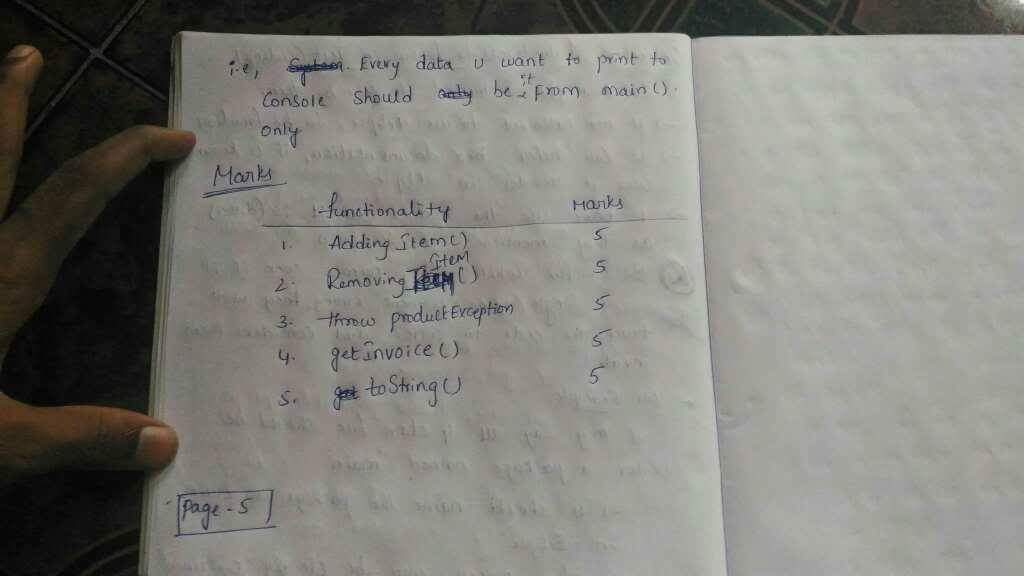 i.e, Every data u want to print to
Console should be it from main().
only
Marks
functionality Marks
1. Adding Item() 5
2. Removing Item() 5
3. throw productException 5
4. getInvoice() 5
5. toString() 5
Page - 5